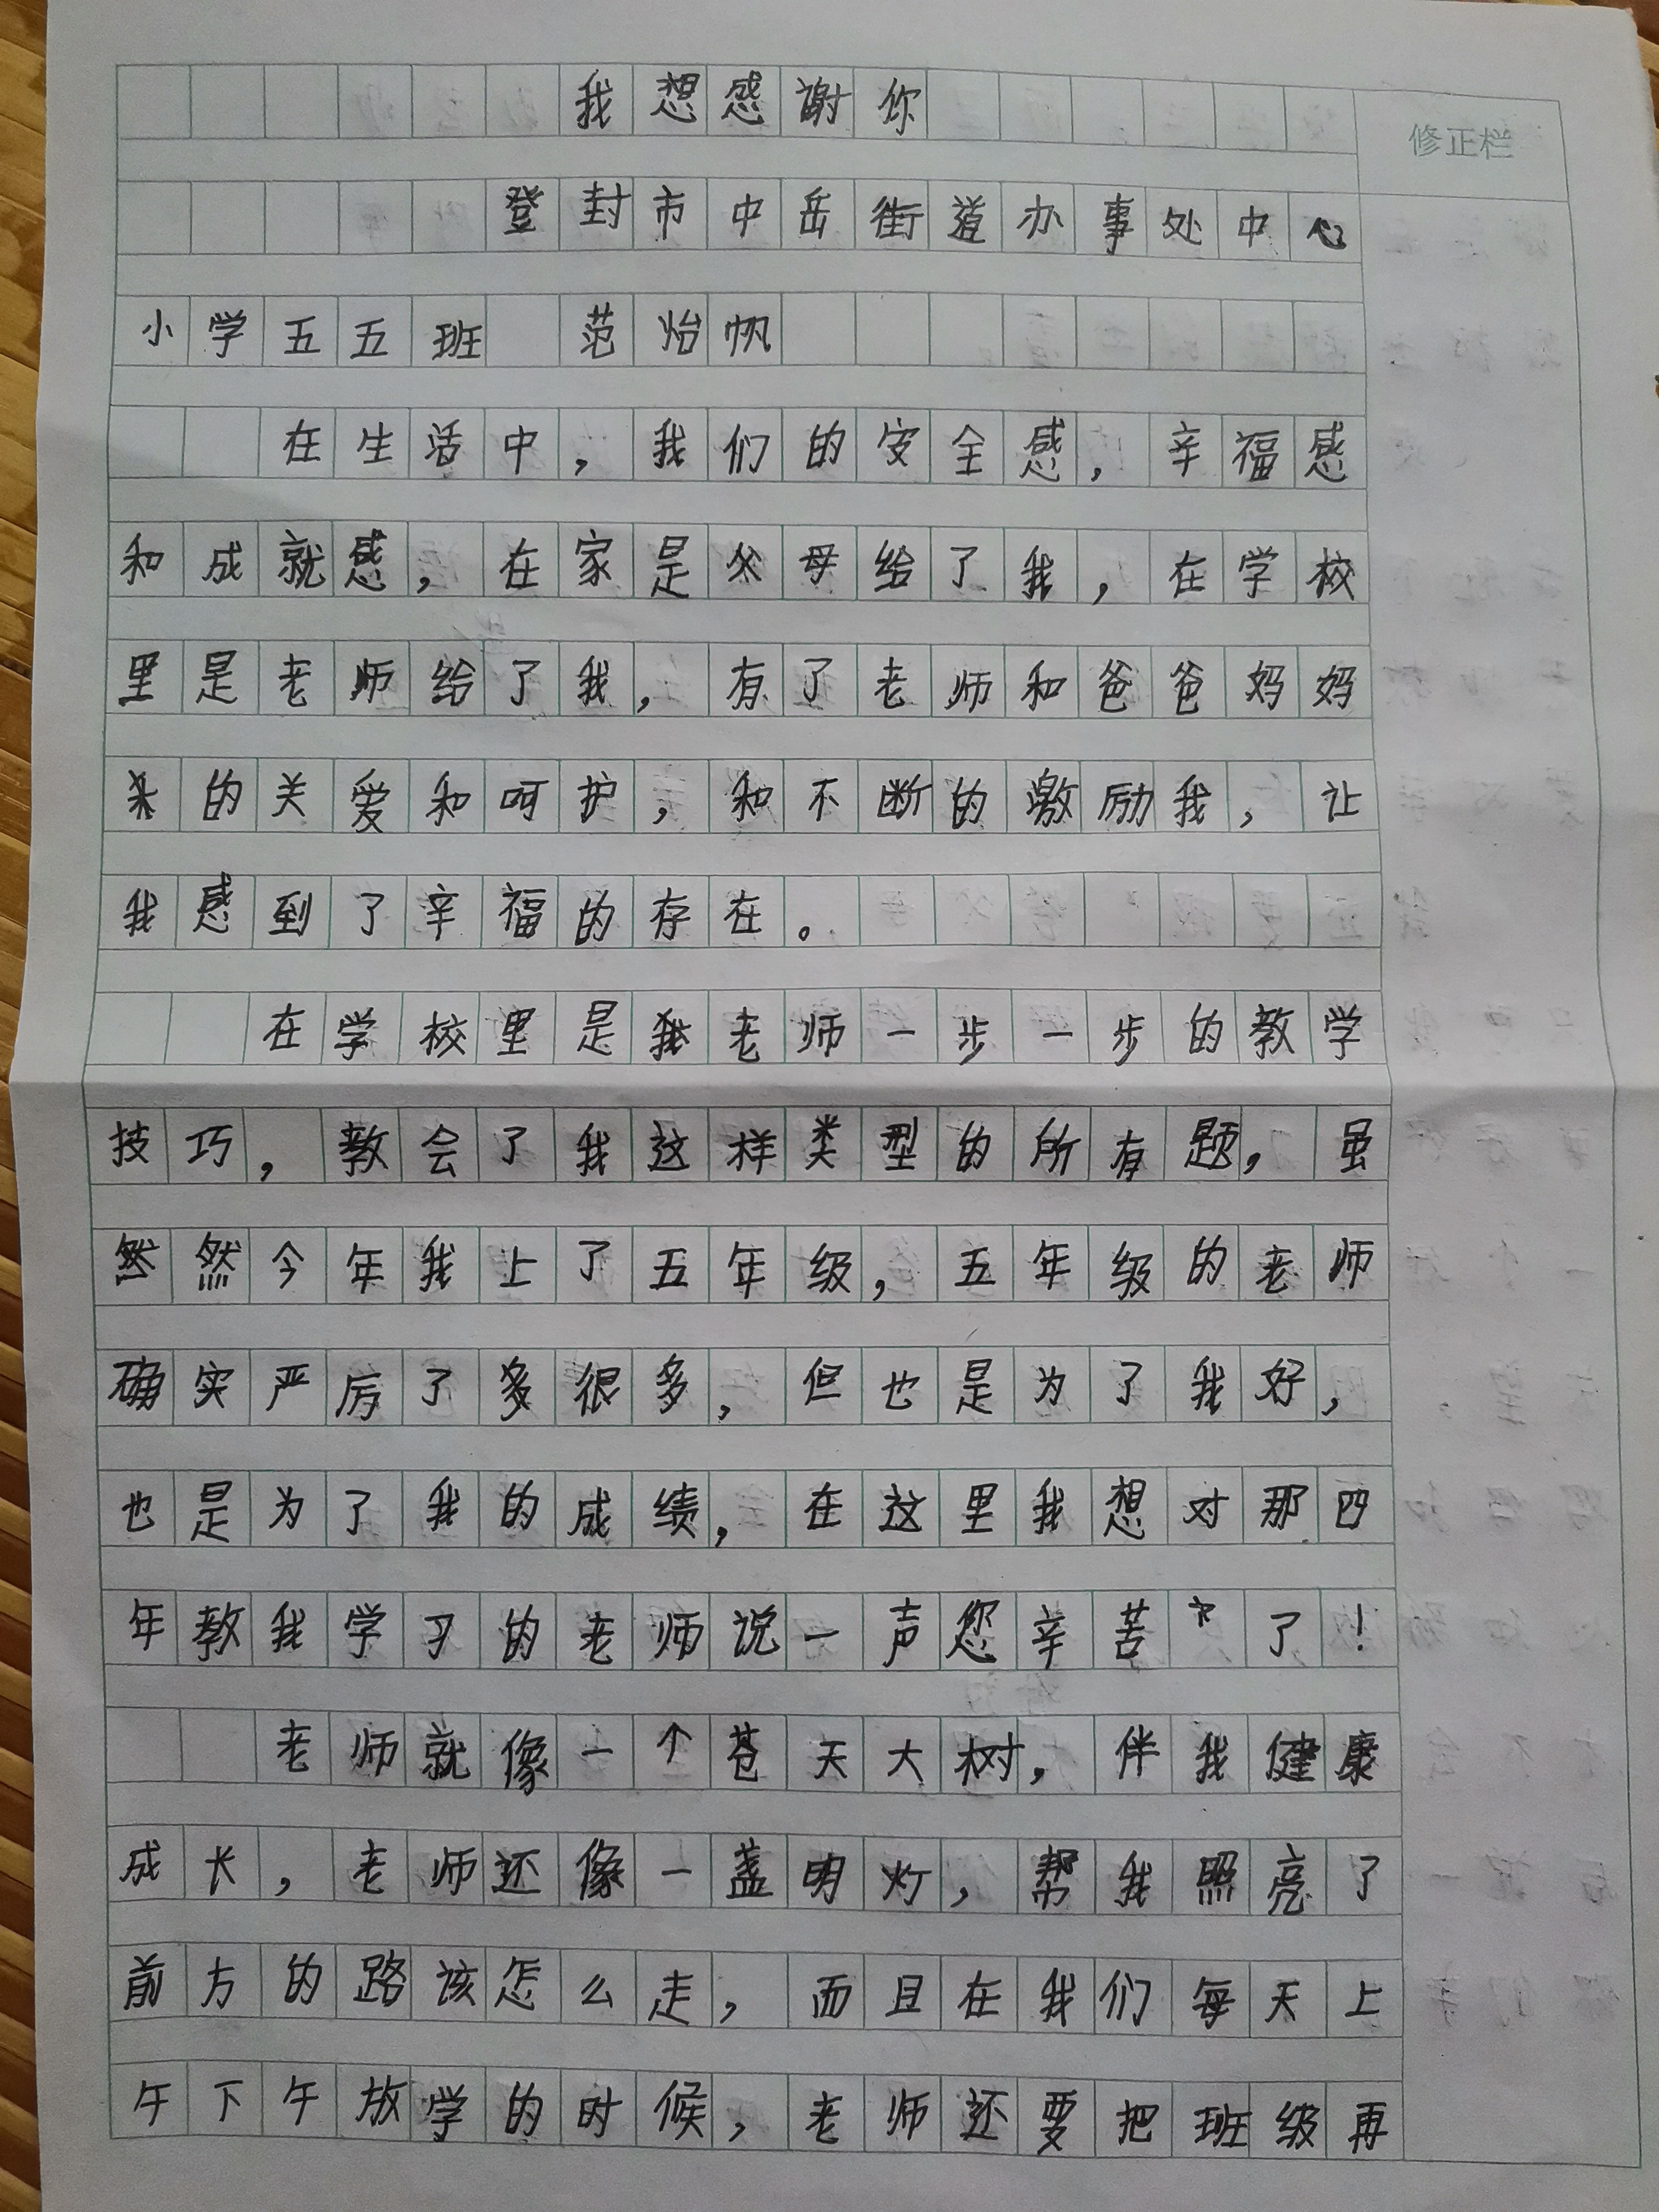 我想感谢你
修正栏
登封市中岳街道办事处中心
小学五五班 范怡帆
在生活中，我们的安全感，辛福感
和成就感，在家是父母给了我，在学校
里是老师给了我，有了老师和爸爸妈妈
的关爱和呵护，和不断的激励我，让
我感到了辛福的存在。
在学校里是我老师一步一步的教学
技巧，教会了我这样类型的所有题，虽
然然今年我上了五年级，五年级的老师
确实严厉了多很多，但也是为了我好，
也是为了我的成绩，在这里我想对那四
年教我学习的老师说一声您辛苦了！
老师就像一个苍天大树，伴我健康
成长，老师还像一盏明灯，帮我照亮了
前方的路该怎么走，而且在我们每天上
午下午放学的时候，老师还要把班级再